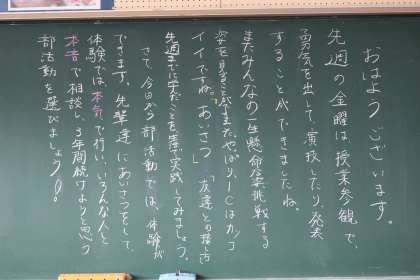 おはようございます。
先週の金曜は授業参観で、
勇気を出して、演技したり、発表
することができましたね。
またみんなの一生懸命挑戦する
姿を見ることができました。やっぱり1-Cはカッコ
イイですね。「あいさつ」「友達との接し方」
先週までに学だことを生活で実践してみましょう。
さて、今日から部活動では、体験が
できます。先輩達にあいさつをして、
体験では本気で行い、いろんな人と
本音で相談し、3年間続けようと思う
部活動を選びましょう!